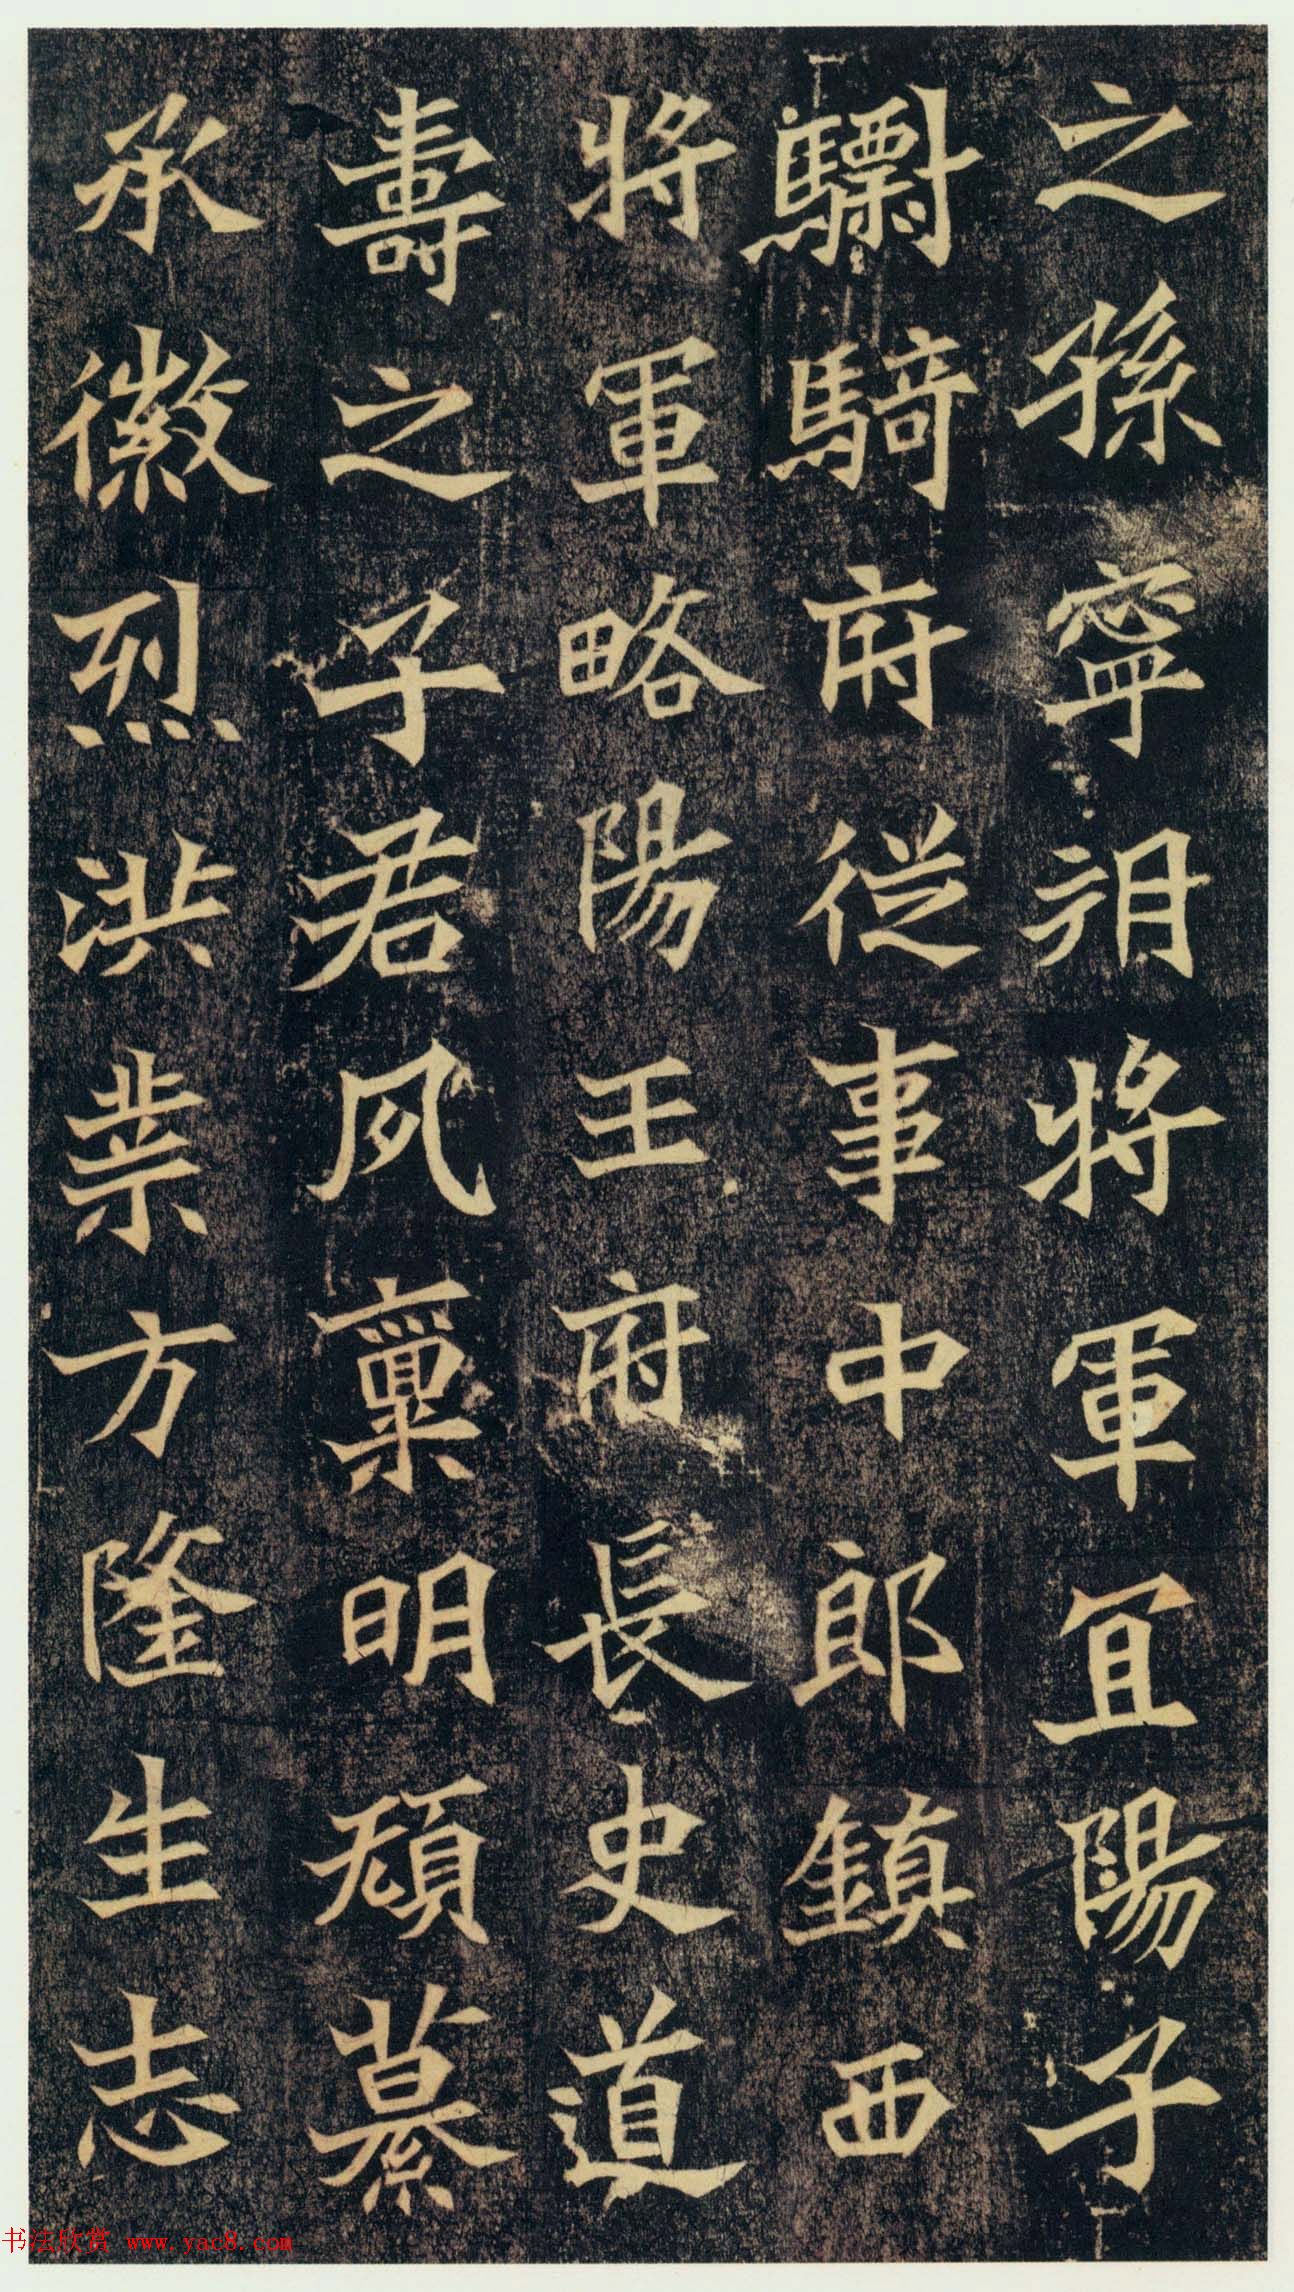 之孫寧朔將軍冝陽子
驃騎府從事中郎鎮西
將軍略陽王府長史道
壽之子君夙稟明頑纂
承徽烈洪業方隆生志
书法欣赏 www.yac8.com